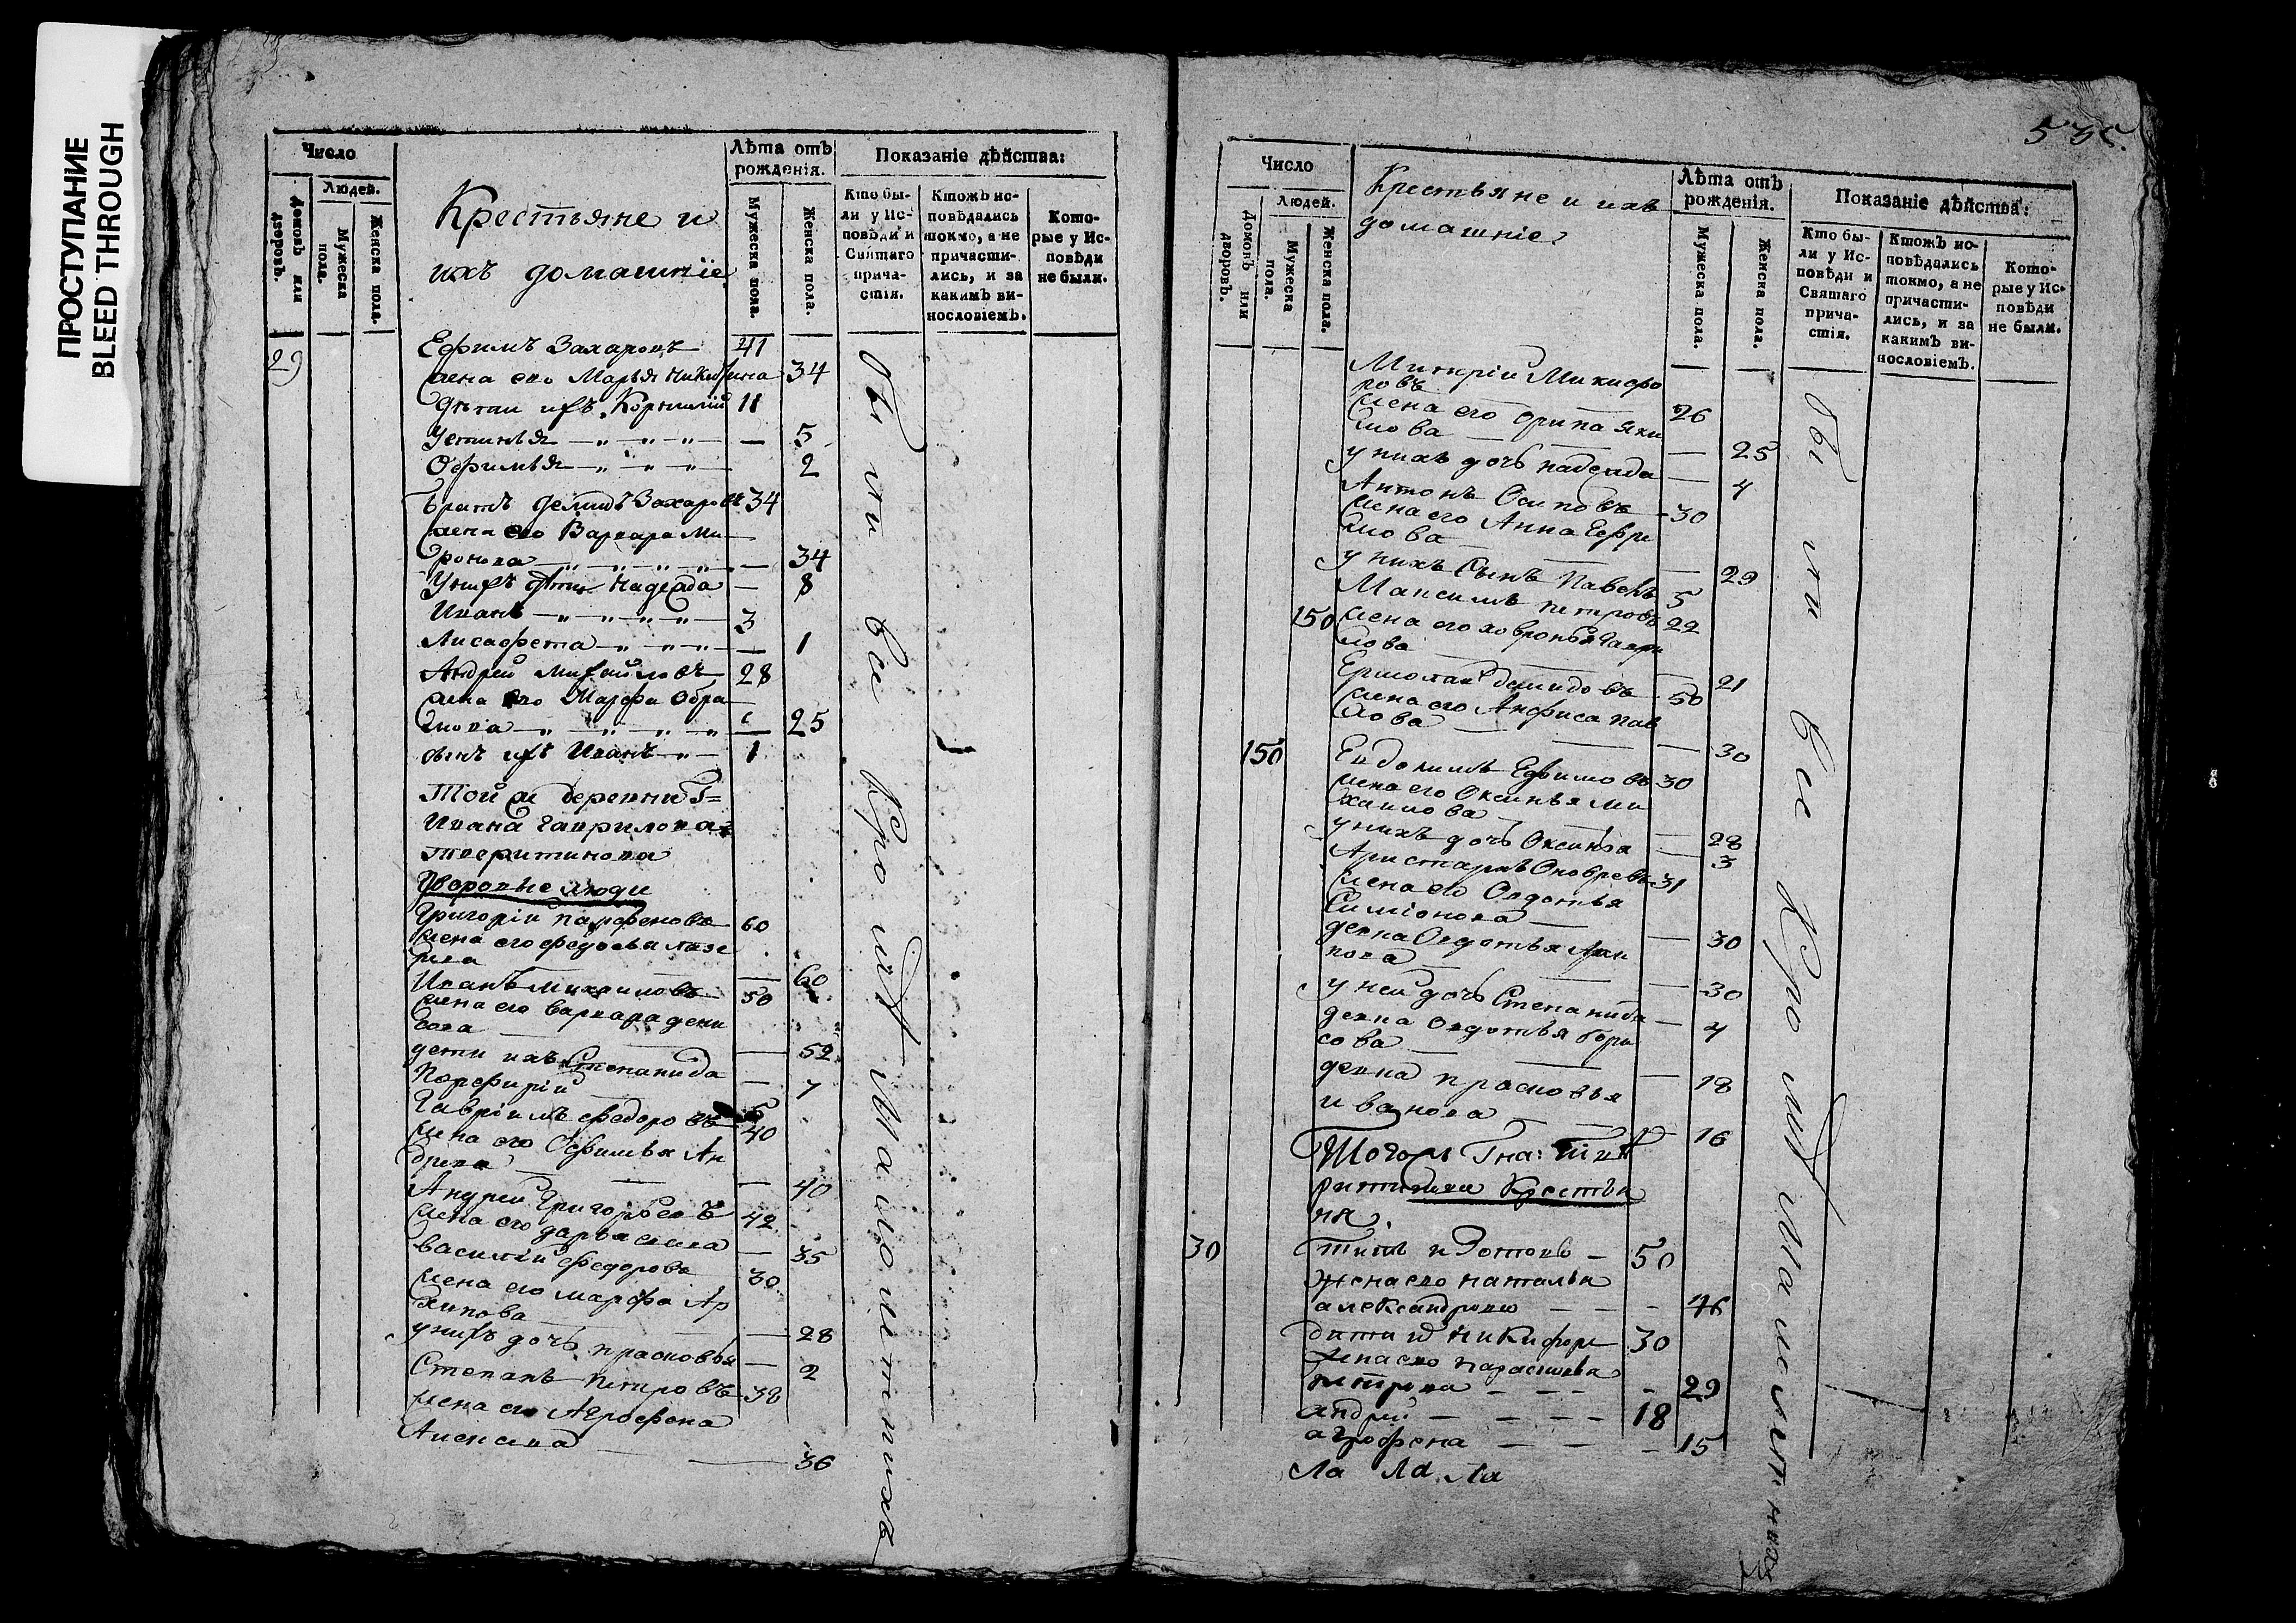 ПРОСТУПАНИЕ
BLEED THROUGH
Число
Людей.
Домовъ или дворовъ.
Мужеска пола.
Женска пола.
Крестьяне и
ихъ домашніе
Лѣта отъ
рожденія.
Мужеска пола.
Женска пола.
Показаніе дѣйства:
Кто бы-
ли у Ис-
повѣди и
Святаго
прича-
стія.
Ктожъ ис-
повѣдались
токмо, а не
причасти-
лись, и за
какимъ ви-
нословіемъ.
Кото-
рые у Ис-
повѣди
не были.
29
Ефимъ Захаровъ 41
жена его Марья Никитина 34
дѣти ихъ Корнилій 11
Устинья 5
Офимья 2
братъ Демидъ Захаровъ 34
жена его Варвара Ми
ронова 34
У нихъ дѣти Надежда 8
Иванъ 3
Лисафета 1
Андрей Михайловъ 28
жена его Марфа Обра
мова 25
сынъ ихъ Иванъ 1
Той же деревни Г=
Ивана Гаврилова
Тверитинова
Дворовые люди
Григоріи Парфеновъ 60
жена его федосья лазе
рева 60
Иванъ михаиловъ 50
жена его варвара дени
сова 52
дети ихъ Степанида 7
Порфирій 5
Гавріилъ федоровъ 40
жена его Офимья Ан
дреева 40
Андреи Григорьевъ 42
жена его дарья 35
василій федоровъ 30
жена его марфа Ар
хипова 28
у нихъ дочь прасковья 2
Степанъ петровъ 38
жена его Агрофена
36
бы ли все кро мѣ малолетнихъ
535.
Число
Людей.
Домовъ или дворовъ.
Мужеска пола.
Женска пола.
Крестьяне и ихъ
домашніе
Лѣта отъ
рожденія.
Мужеска пола.
Женска пола.
Показаніе дѣйства:
Кто бы-
ли у Ис-
повѣди и
Святаго
прича-
стія.
Ктожъ ис-
повѣдались
токмо, а не
причасти-
лись, и за
какимъ ви-
нословіемъ.
Кото-
рые у Ис-
повѣди
не были.
Митріи Микифо
ровъ 26
жена его Орина Яки
мова 25
у нихъ дочь надежда 4
Антонъ Осиповъ 30
жена его Анна Ефри
мова 29
у нихъ Сынъ Павелъ 5
Максимъ петровъ 22
150 жена его ховронья Гаври
лова 21
Ермолаи демидовъ 50
жена его Анфиса пав
лова 30
150 Евдокимъ Ефимовъ 30
жена его Оксинья ми
хаилова 28
у нихъ дочь Оксинья 3
Аристархъ 31
жена его Овдотья
Симіонова 30
девка Овдотья
пова 30
у неи дочь Степанида 4
девка овдотья бори
сова 18
девка прасковья
иванова 16
Тогожъ Гна:
Крестья
ня.
30 50
жена его наталья
александрова 46
дѣти и Никифоръ 30
жена его парасковья
петрова 29
андрей 18
агрофена 15
Ла Ла Ла
бы ли все кро мѣ малолетнихъ